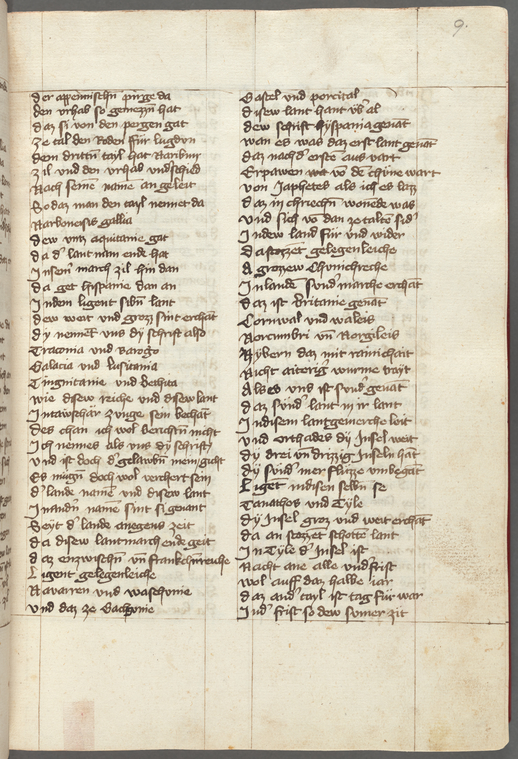 9.
der appeinischñ pirge da
den vrhab so genezzñ hat
daz si von den pergen gat
Ze tal den Roden für lugdvn
dem drittñ tayl hat Narbun
Zil vnd den vrhab vndschied
Nach seinē name an geleit
So daz man den tayl nennet da
Narbonensis gallia
dew vntz aquitanie gat
da d' lant nam ende hat
In sem march zil hin dan
da get hispanie dan an
In dem ligent sibñ lant
dew weit vnd groz sint erchāt
dy nennēt vns dy schrift also
Traconia vnd Kartgo
Galacia vnd lusitania
Tingnitanie vnd bethica
wie disew reiche vnd disew lant
In tawtschar zunge sein bechāt
des chan ich wol berichtñ nicht
Ich nennes als vns dy schrift
vnd ist doch d' gelawbñ mein gicht
Es mügñ doch wol verchert sein
d' lande namē vnd disew lant
In andñ namē sint si genant
Seyt d' lande anegens zeit
da disew lantmarch ende geit
daz enzwischñ vñ frankchñreiche
Ligent gelegenleiche
Navarren vnd waschonie
vnd daz ze Baschonie
Castel vnd portigal
disew lant hant vb'al
dew schrift hyspania genāt
wan es was daz erst lant genāt
daz nach d' erste aus vart
Erpawen wt vō de chüne wart
von Japhetes als ich es laz
daz in chriechñ wonede was
vnd sich vō dan ze taltē sid'
In dew land für vnd wider
da stozzet gelegenleiche
A grozzew Chunichreiche
In lande sund' marche erchāt
daz ist britanie genāt
Cornwal vnd waleis
Norcumbri vñ Norgileis
Nybern daz mit rainichait
Nicht aiterig wurme trayt
Als es vns ist sund' genāt
daz sünd' lant in ir lant
In disem lantgemerche leit
vnd Orthades dy Insel weit
dy drei vñ drizzig Inseln hāt
dy sünd' mer flüzze vmbegāt
Liget in disen selbñ se
Tanathos vnd Tyle
dy Insel groz vnd weit erchāt
da an stozzet schottē lant
In Tyle d' Insel ist
Nacht ane alle vndfrist
wol auff daz halbe iar
daz and' tayl ist tag für war
In d' frist so dew sumer zit